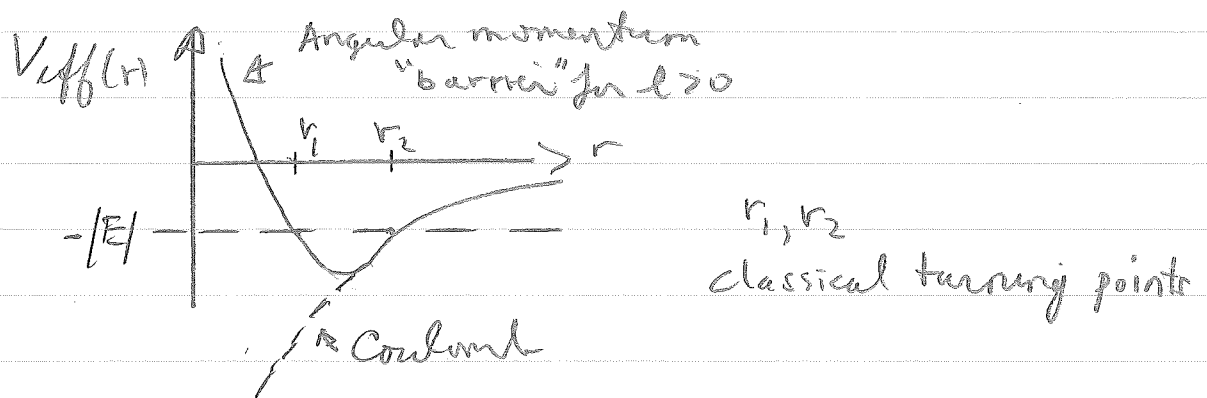 Veff(r)
Angular momentum
"barrier" for l>0
r₁ r₂
r
-|E|
r₁, r₂
classical turning points
Coulomb